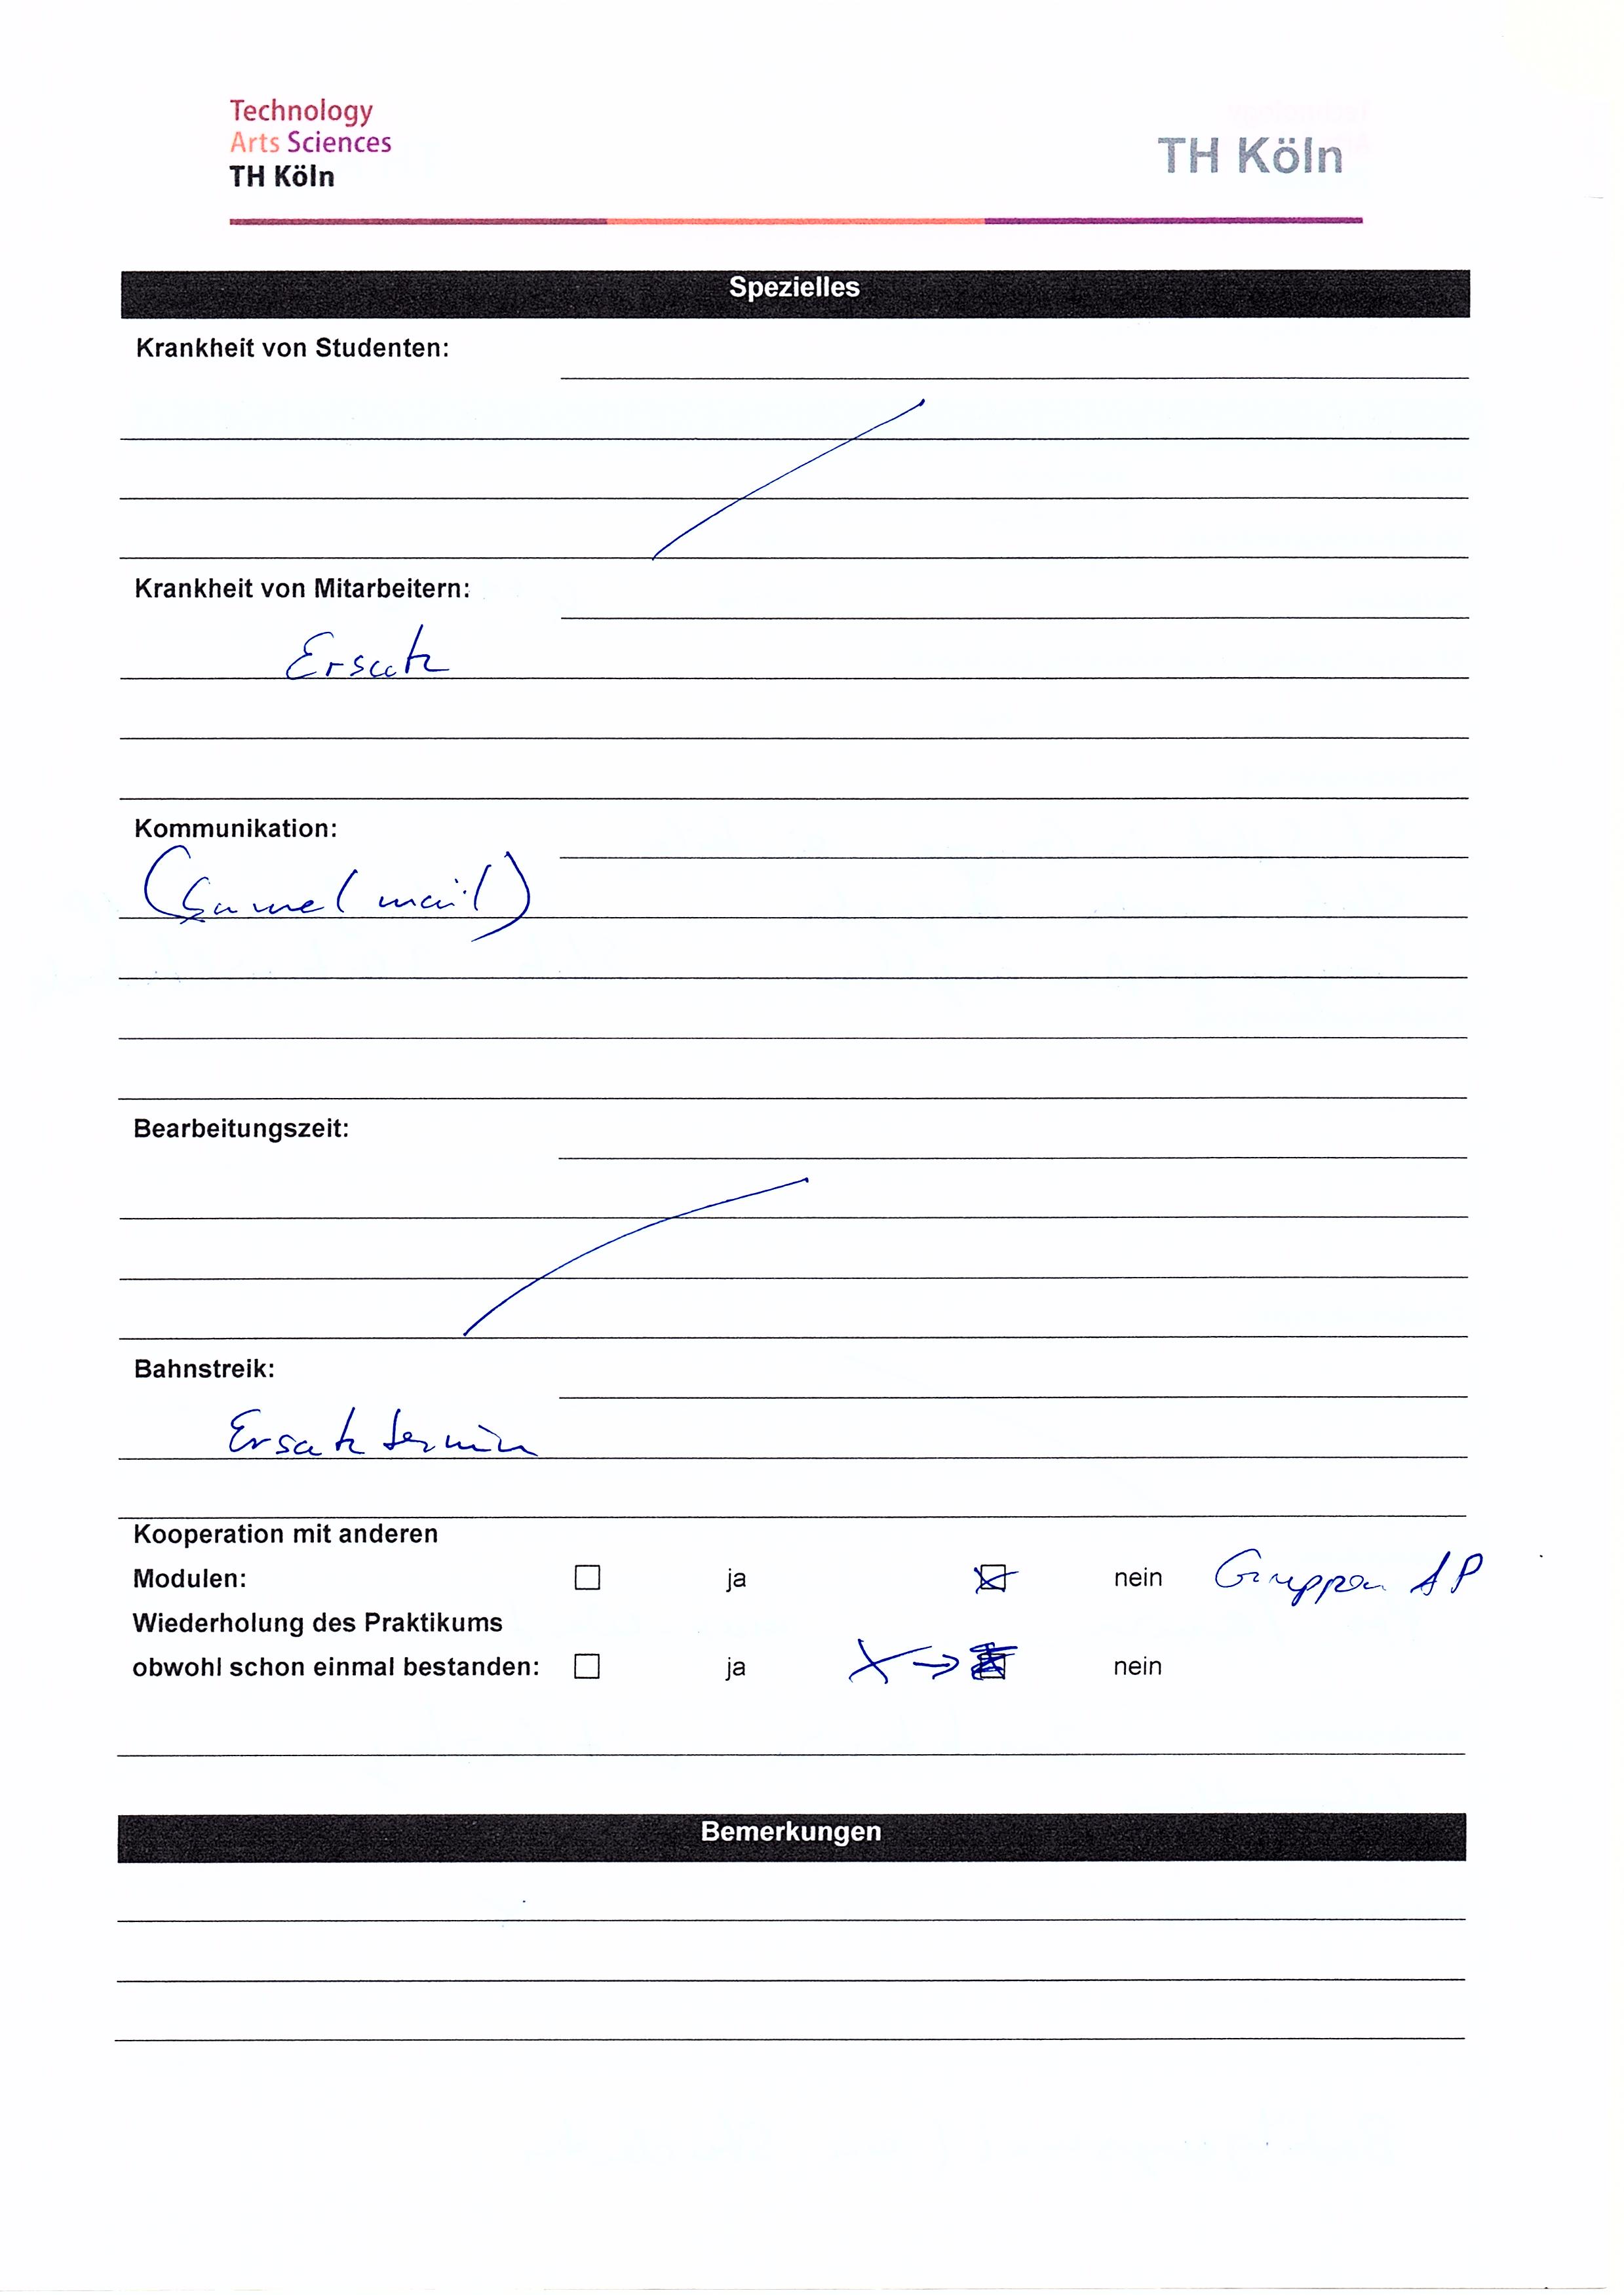 Technology
Arts Sciences
TH Köln
TH Köln
Spezielles
Krankheit von Studenten:
Krankheit von Mitarbeitern:
Ersatz
Kommunikation:
(Sammelmail)
Bearbeitungszeit:
Bahnstreik:
Ersatztermin
Kooperation mit anderen
Modulen: ☐ ja ☒ nein Gruppen AP
Wiederholung des Praktikums
obwohl schon einmal bestanden: ☐ ja X → ☒ nein
Bemerkungen